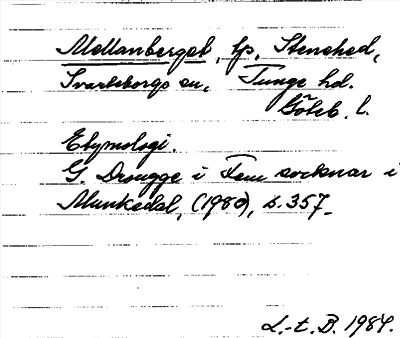 Mellanberget, tp, Stenehed,
Svarteborgs sn, Tunge hd.
Göteb. l.
Etymologi.
G. Drougge i Fem socknar i
Munkedal, (1980), s. 357.
L.-t. B. 1984.